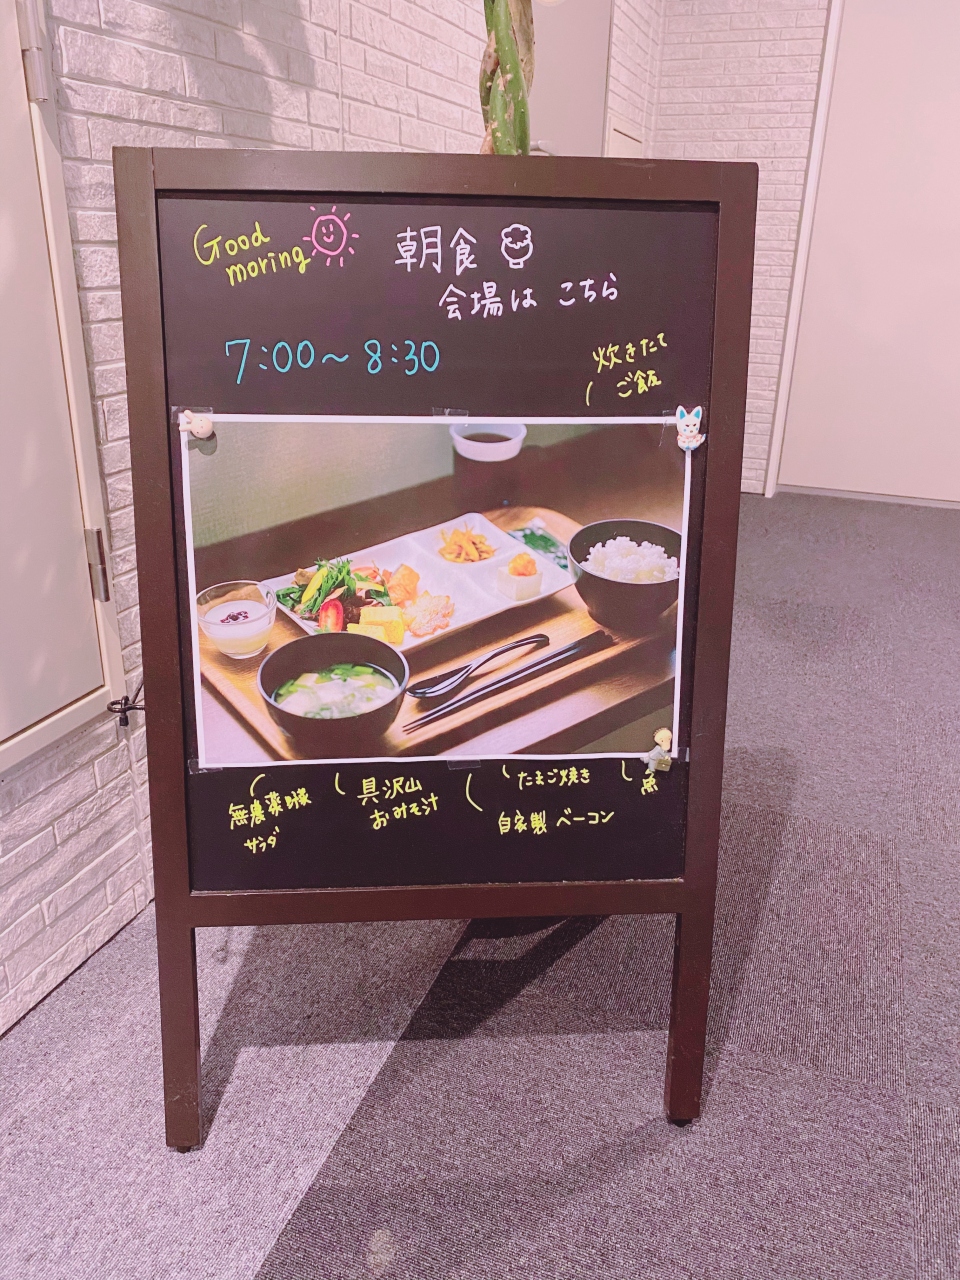 Good
moring
朝食
会場は こちら
7:00～8:30
炊きたて
ご飯
無農薬野菜
サラダ
具沢山
おみそ汁
たまご焼き
自家製 ベーコン
魚